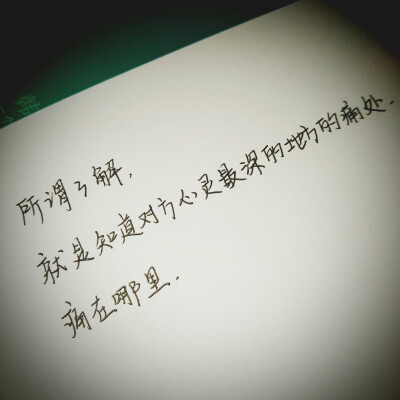 所谓了解.
就是知道对方心灵最深的地方的痛处.
痛在哪里.